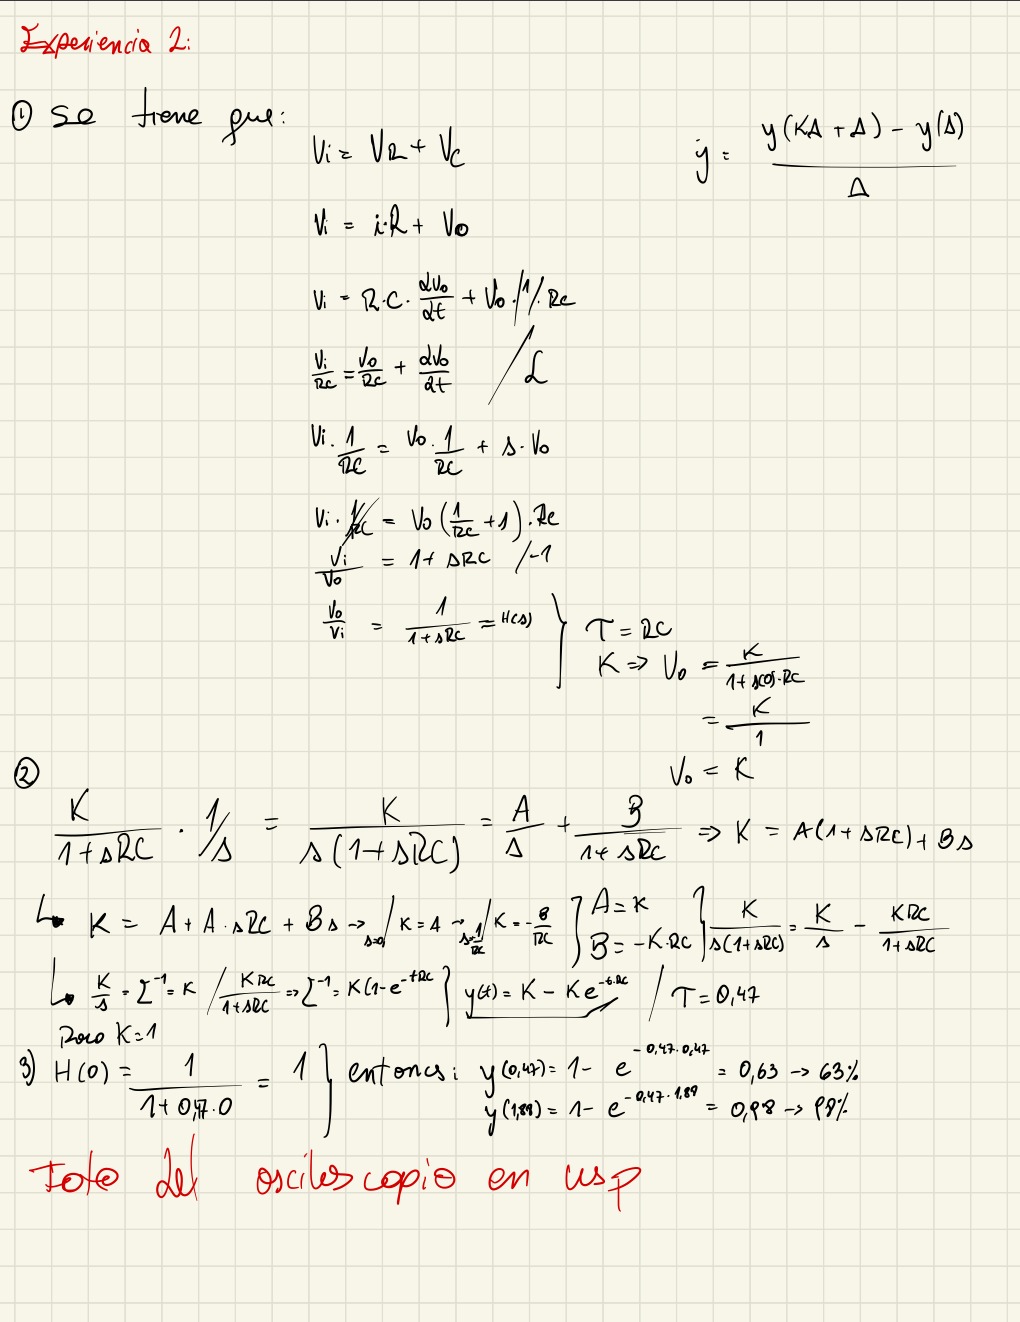 Experiencia 2:
① Se tiene que:
Vi = VR + Vc
ẏ = (y(KΔ + Δ) - y(Δ)) / Δ
Vi = i·R + Vo
Vi = R·C · dVo/dt + Vo · / 1/. RC
Vi/RC = Vo/RC + dVo/dt / L
Vi · 1/RC = Vo · 1/RC + s · Vo
Vi · 1/RC = Vo (1/RC + 1) · RC
Vi/Vo = 1 + sRC /-1
Vo/Vi = 1/(1 + sRC) = H(s) } τ = RC
K => Vo = K/(1 + s(0)·RC)
= K/1
Vo = K
②
K/(1 + sRC) · 1/s = K/(s(1 + sRC)) = A/s + B/(1 + sRC) => K = A(1 + sRC) + Bs
↳ K = A + A·sRC + Bs → s=0 / K = A → s=-1/RC / K = -B/RC } A = K B = -K·RC } K/(s(1+sRC)) = K/s - KRC/(1+sRC)
↳ K/s = L⁻¹ = K / KRC/(1+sRC) => L⁻¹ = K(1-e^(-tRC) } y(t) = K - Ke^(-t·RC) / τ = 0,47
Para K=1
3) H(0) = 1/(1 + 0,47·0) = 1 } entonces: y(0,47) = 1 - e^(-0,47·0,47) = 0,63 → 63%
y(1,88) = 1 - e^(-0,47·1,88) = 0,98 → 98%
Foto del osciloscopio en wsp